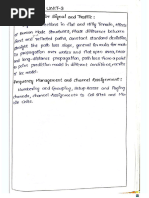 UNIT-3
Signal and Traffic :
in flat and hilly Terrain, effect
or human made structures, Phase difference between
and reflected paths, constant standard deviation
straight line path loss slope, general formula for path
propagation over water and flat open area, near
and long-distance propagation, path loss from a point
to point prediction model in different conditions, merits
of
Frequency Management and Channel Assignment :
Numbering and Grouping, Setup Access and Paging
channels, channel Assignments to Cell Sites and Mo-
bile Units.